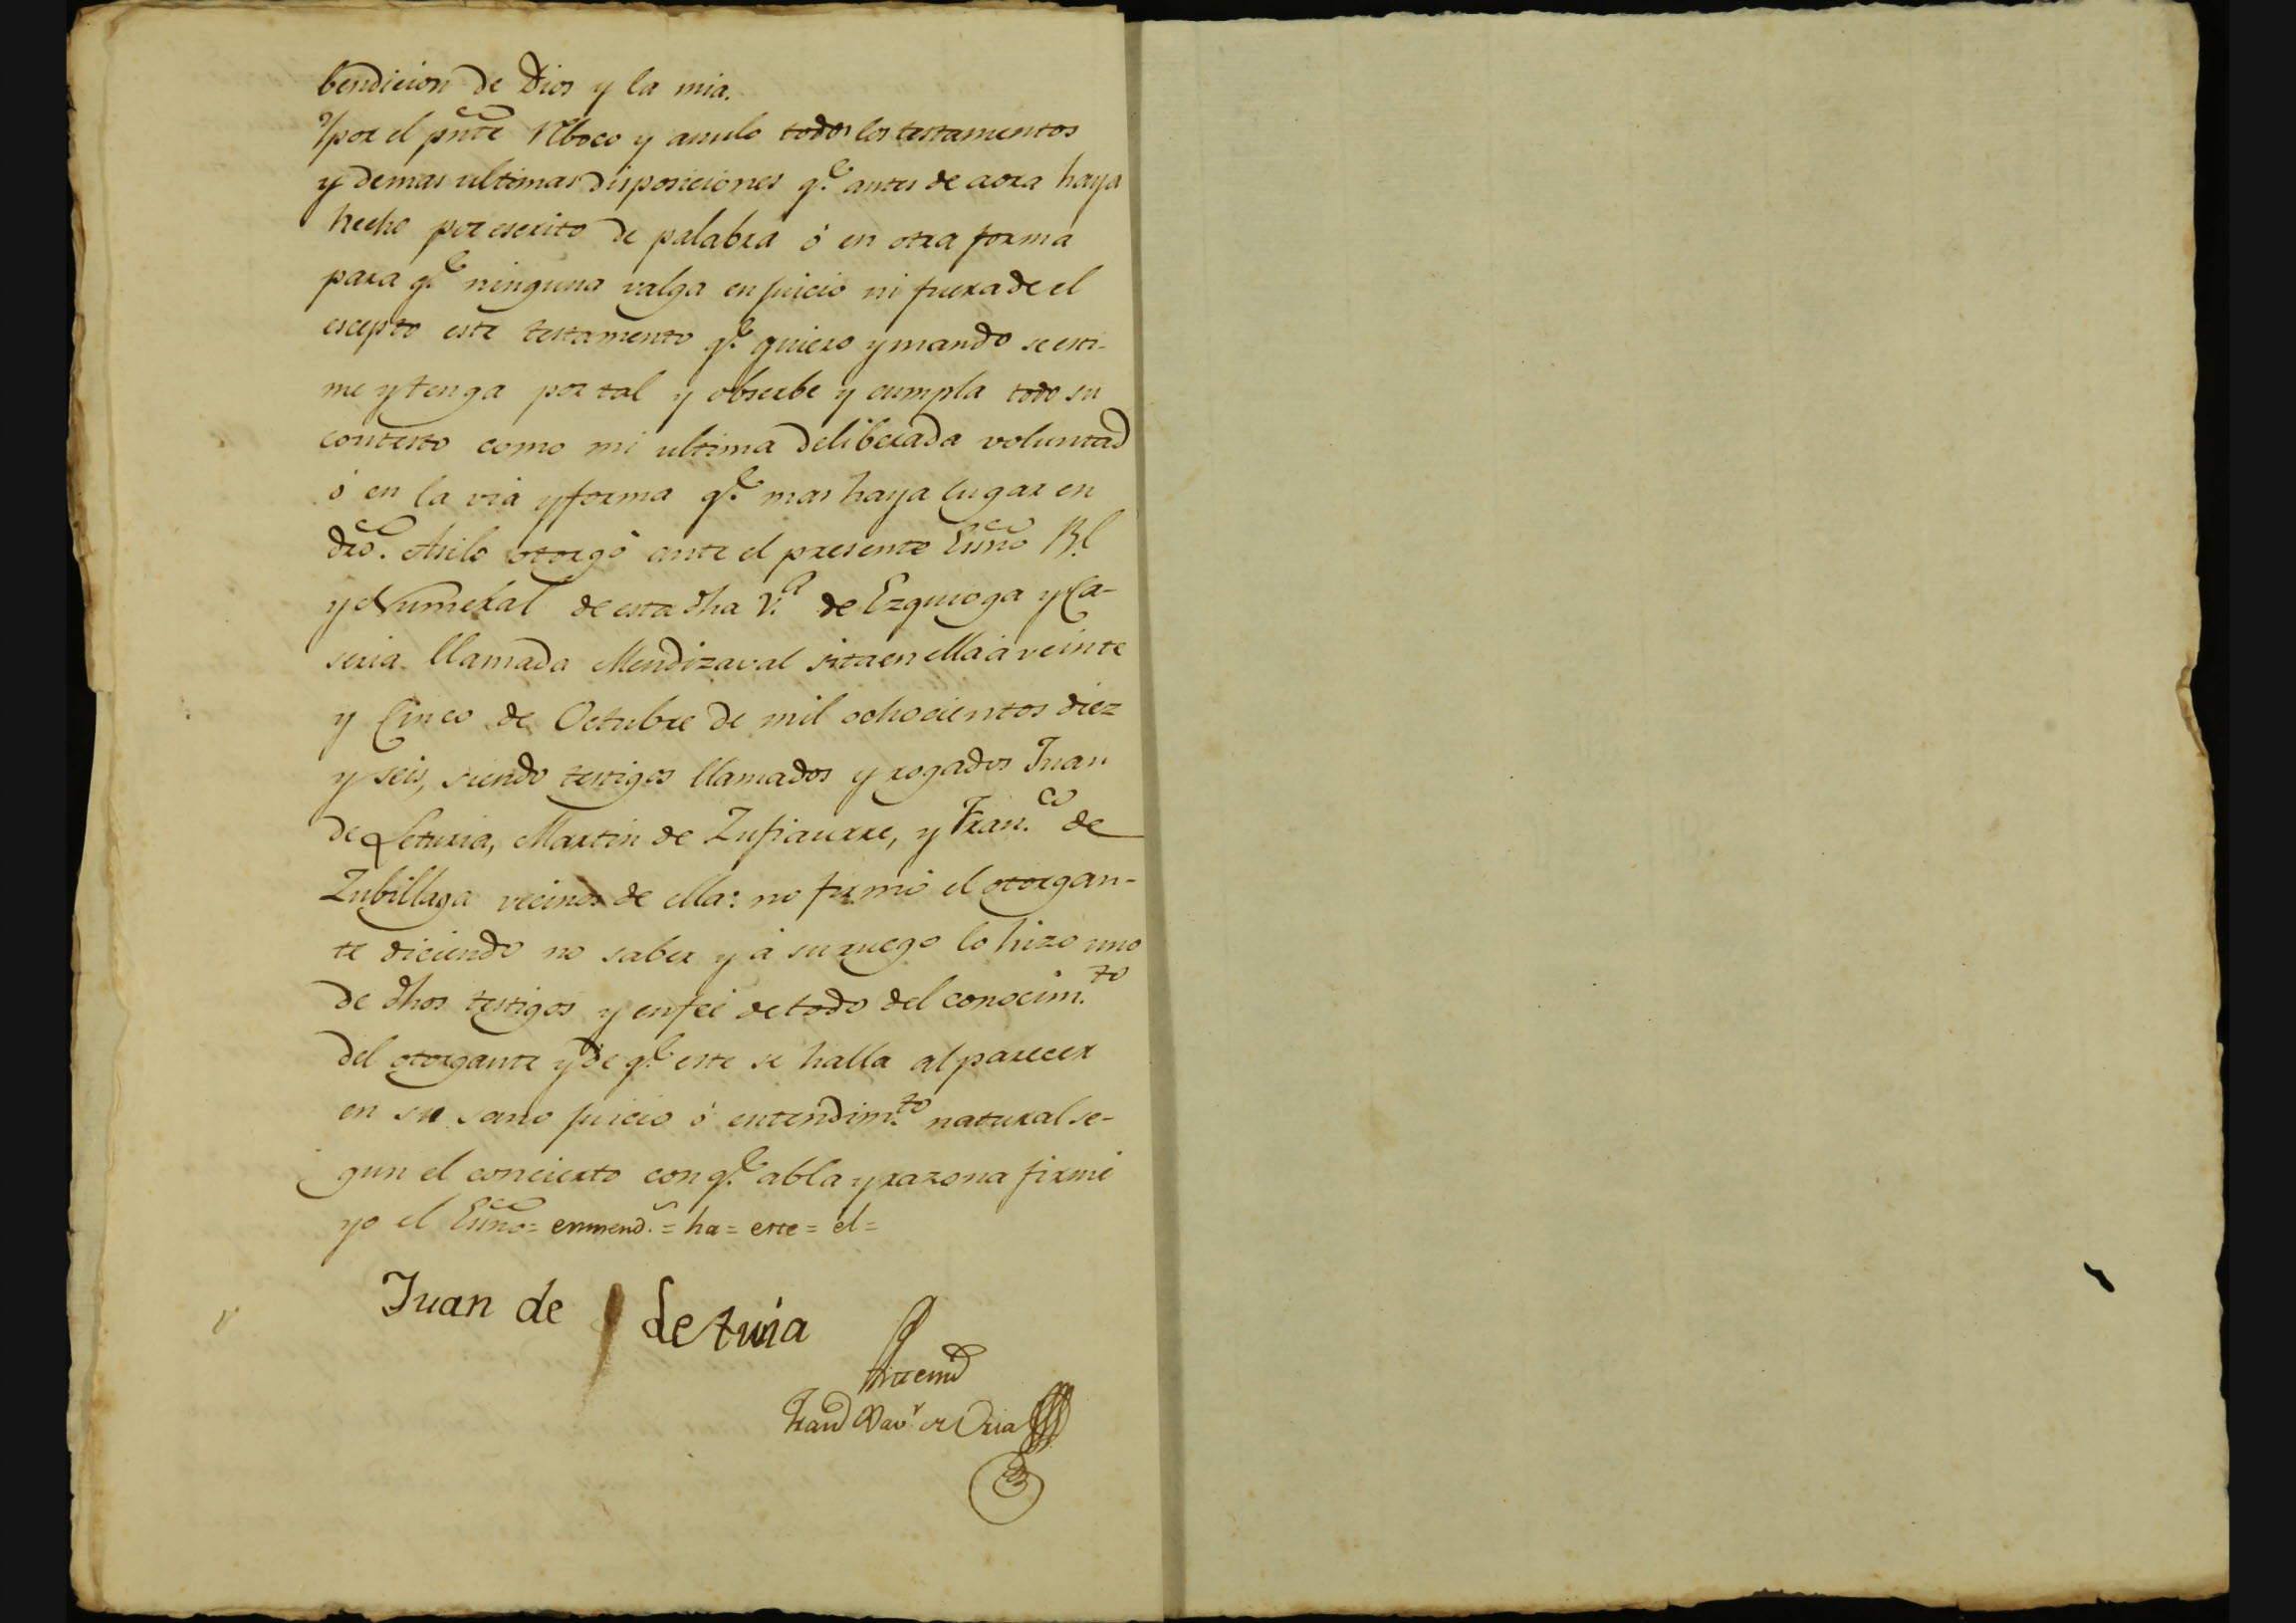 bendicion de Dios y la mia.
Y por el pnte reboco y anulo todos los testamentos
y demas ultimas disposiciones q.e antes de aora haya
hecho por escrito de palabra ó en otra forma
para q.e ninguna valga en juicio ni fuera de el
escepto este testamento q.e quiero y mando se esti-
me y tenga por tal y obserbe y cumpla todo su
contesto como mi ultima deliberada voluntad
ó en la via y forma q.e mas haya lugar en
dro. Asilo otorgó ante el presente Essno R.l
y Numeral de esta dha V.a de Ezquioga y Ca-
seria llamada Mendizaval sita en ella á veinte
y Cinco de Octubre de mil ochocientos diez
y seis, siendo testigos llamados y rogados Juan
de Leturia, Martin de Zufiaurre, y Fran.co de
Zubillaga vecinos de ella: no firmó el otorgan-
te diciendo no saber y á su ruego lo hizo uno
de dhos testigos y en feé de todo del conocim.to
del otorgante y de q.e este se halla al parecer
en su sano juicio ó entendim.to natural se-
gun el concierto con q.e abla y razona firmé
yo el Essno = enmend.s = ha = este = el =
Juan de Leturia
Ante mi
Fran.co Xav.r de Oria